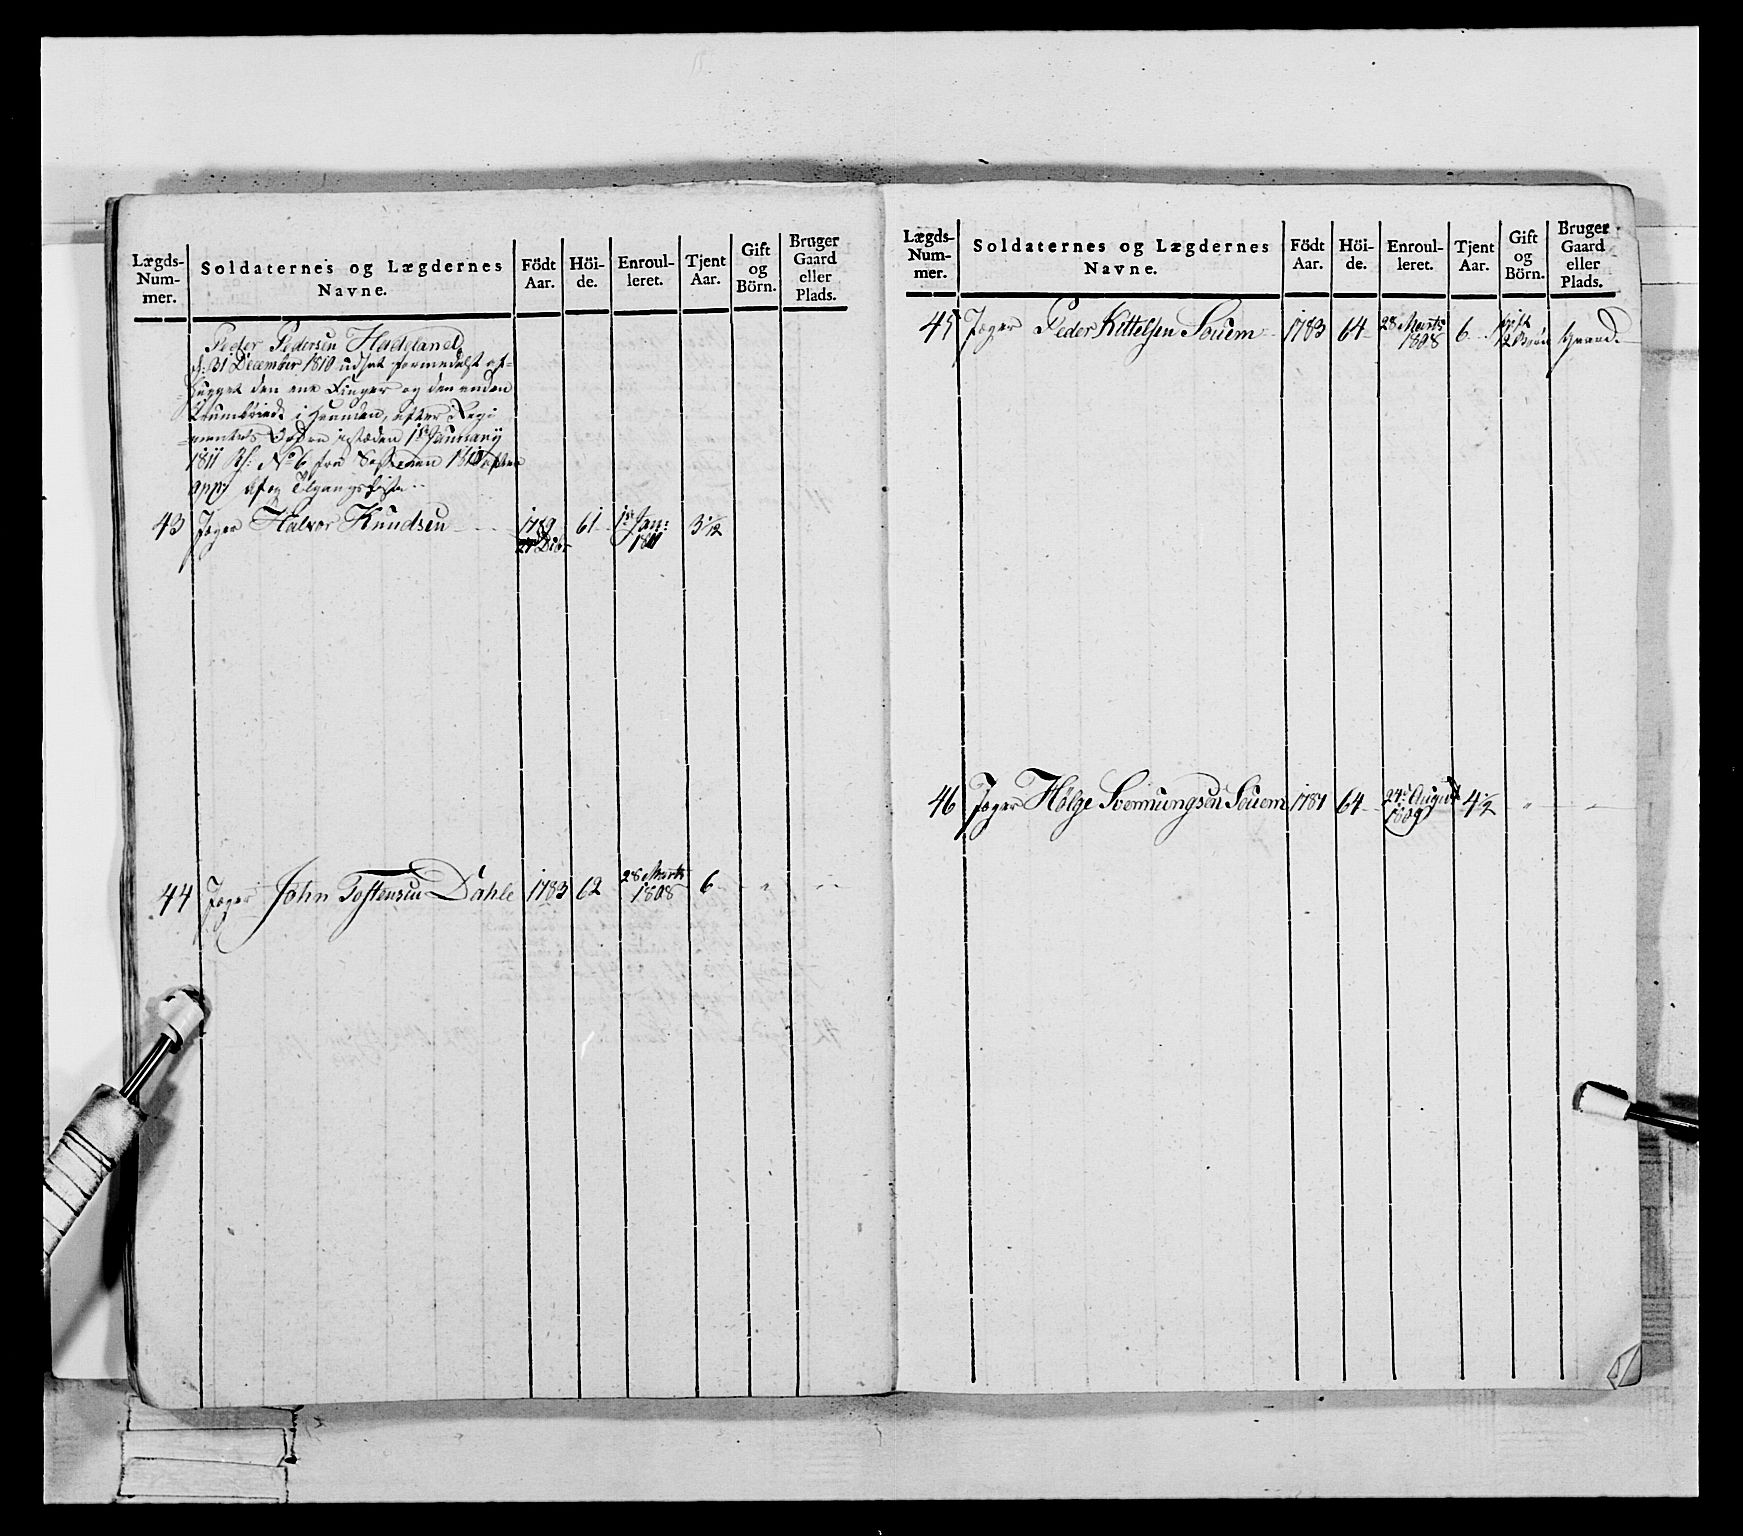 Lægds-
Num-
mer.
Soldaternes og Lægdernes
Navne.
Födt
Aar.
Höi-
de.
Enroul-
leret.
Tjent
Aar.
Gift
og
Börn.
Bruger
Gaard
eller
Plads.
Peder Pedersen Hadeland
d: 31 December 1810 udsat formedelst af-
hugget den ene Finger og den anden
krumbøiede i Haanden, efter Regi
-mentets Ordre istæden 1ste January
1811 No 6 fra Sessionen 1810 efter
app: Af og Tilgangsliste
43 Jæger Halvor Knudsen 1789 61 1ste Jan: 1811 3 1/12
44 Jæger John Tostensen Dahle 1783 62 28 Marts 1808 6 " "
Lægds-
Num-
mer.
Soldaternes og Lægdernes
Navne.
Födt
Aar.
Höi-
de.
Enroul-
leret.
Tjent
Aar.
Gift
og
Börn.
Bruger
Gaard
eller
Plads.
45 Jæger Peder Kittelsen Souem 1783 64 28 Marts 1808 6 gift 2 Børn Gaard
46 Jæger Hølge Svennungsen Souem 1787 64 24de August 1809 4 1/2 "